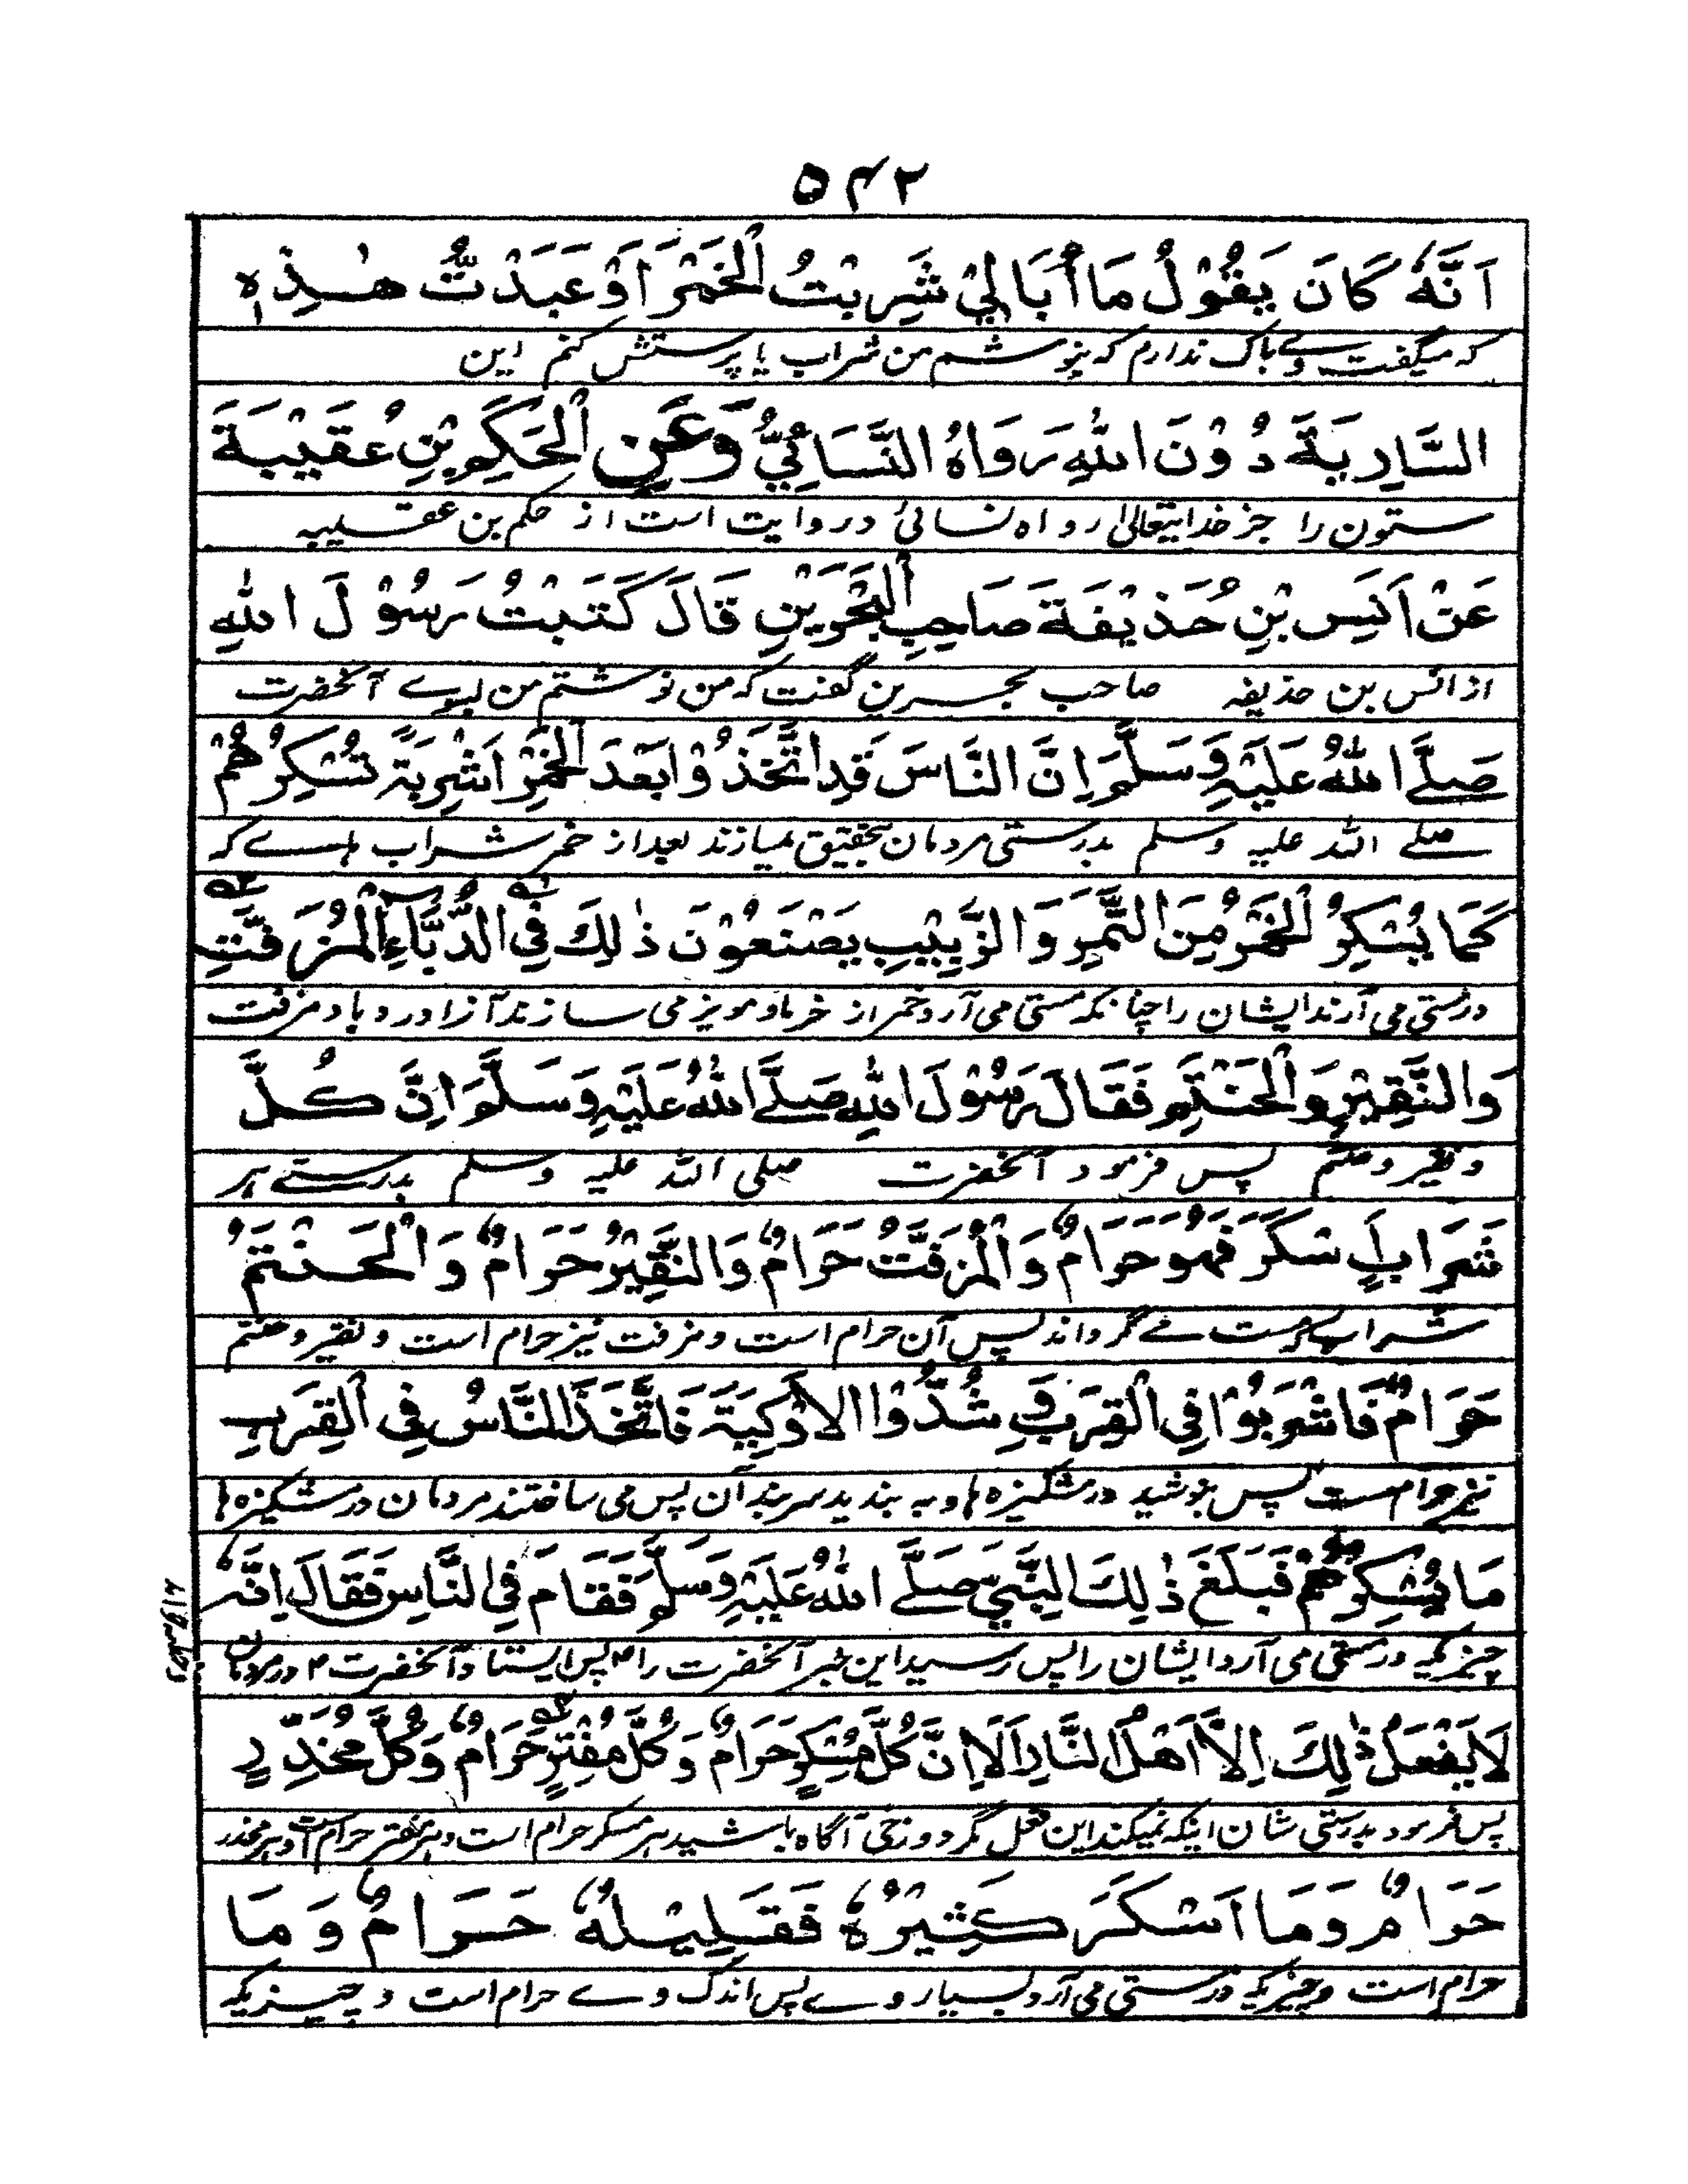 ۵۴۲
اَنَّهٗ كَانَ يَقُوْلُ مَا أُبَالِيْ شَرِبْتُ الْخَمْرَ اَوْ عَبَدْتُّ هٰذِهٖ
که میگفت وے باک ندارم که بنوشم من شراب یا پرستش کنم این
السَّارِيَةَ دُوْنَ اللهِ رَوَاهُ النَّسَائِيُّ وَعَنِ الْحَكِيْمِ بْنِ عُقَيْبَةَ
ستون را جز خدایتعالیٰ رواه نسائی و روایت است از حکم بن عقیبه
عَنْ اَنَسِ بْنِ حُذَيْفَةَ صَاحِبِ الْبَحْرَيْنِ قَالَ كَتَبْتُ رَسُوْلَ اللهِ
از انس بن حذیفه صاحب بحرین گفت که من نوشتم من بسوے آنحضرت
صَلَّے اللهُ عَلَيْهِ وَسَلَّمَ اِنَّ النَّاسَ قَدِ اتَّخَذُوْا بَعْدَ الْخَمْرِ اَشْرِبَةً تُسْكِرُهُمْ
صلے الله علیه وسلم بدرستی مردمان بتحقیق میسازند بعد از خمر شراب هاے که
كَمَا يُسْكِرُ الْخَمْرُ مِنَ التَّمْرِ وَالزَّبِيْبِ يَصْنَعُوْنَ ذٰلِكَ فِي الدُّبَّاءِ الْمُزَفَّتِ
در مستی می آرند ایشان را چنانکه مستی می آرد خمر از خرما و مویز می سازند آنرا در دبا و مزفت
وَالنَّقِيْرِ وَالْحَنْتَمِ فَقَالَ رَسُوْلَ اللهِ صَلَّے اللهُ عَلَيْهِ وَسَلَّمَ اِنَّ كُلَّ
و نقیر و حنتم پس فرمود آنحضرت صلی الله علیه وسلم بدرستے هر
شَرَابٍ اَسْكَرَ فَهُوَ حَرَامٌ وَالْمُزَفَّتُ حَرَامٌ وَالنَّقِيْرُ حَرَامٌ وَالْحَنْتَمُ
شرابے که مست مے گرداند پس آن حرام است و مزفت نیز حرام است و نقیر و حنتم
حَرَامٌ فَاشْرَبُوْا فِي الْقِرَبِ وَشُدُّوْا الْاَوْكِيَةَ فَاتَّخَذَ النَّاسُ فِي الْقِرَبِ
نیز حرام ست پس بنوشید در مشکیزه ها و به بندید سربند آن پس می ساختند مردمان در مشکیزه ها
مَا يُسْكِرُهُمْ فَبَلَغَ ذٰلِكَ النَّبِيَّ صَلَّے اللهُ عَلَيْهِ وَسَلَّمَ فَقَامَ فِي النَّاسِ فَقَالَ اِنَّهٗ
چیزیکه در مستی می آرد ایشان را پس رسید این خبر آنحضرت را ۳ پس ایستاد آنحضرت ۳ در مردمان
لَا يَفْعَلُ ذٰلِكَ اِلَّا اَهْلُ النَّارِ اَلَا اِنَّ كُلَّ مُسْكِرٍ حَرَامٌ وَكُلَّ مُفْتِرٍ حَرَامٌ وَكُلَّ مُخَدِّرٍ
پس فرمود بدرستی شان اینکه نمیکند این فعل مگر دوزخی آگاه باشید هر مسکر حرام است و هر مفتر حرام است و هر مخدر
حَرَامٌ وَمَا اَسْكَرَ كَثِيْرُهٗ فَقَلِيْلُهٗ حَرَامٌ وَ مَا
حرام است و چیزیکه در مستی می آرد بسیار وے پس اندک وے حرام است و چیزیکه